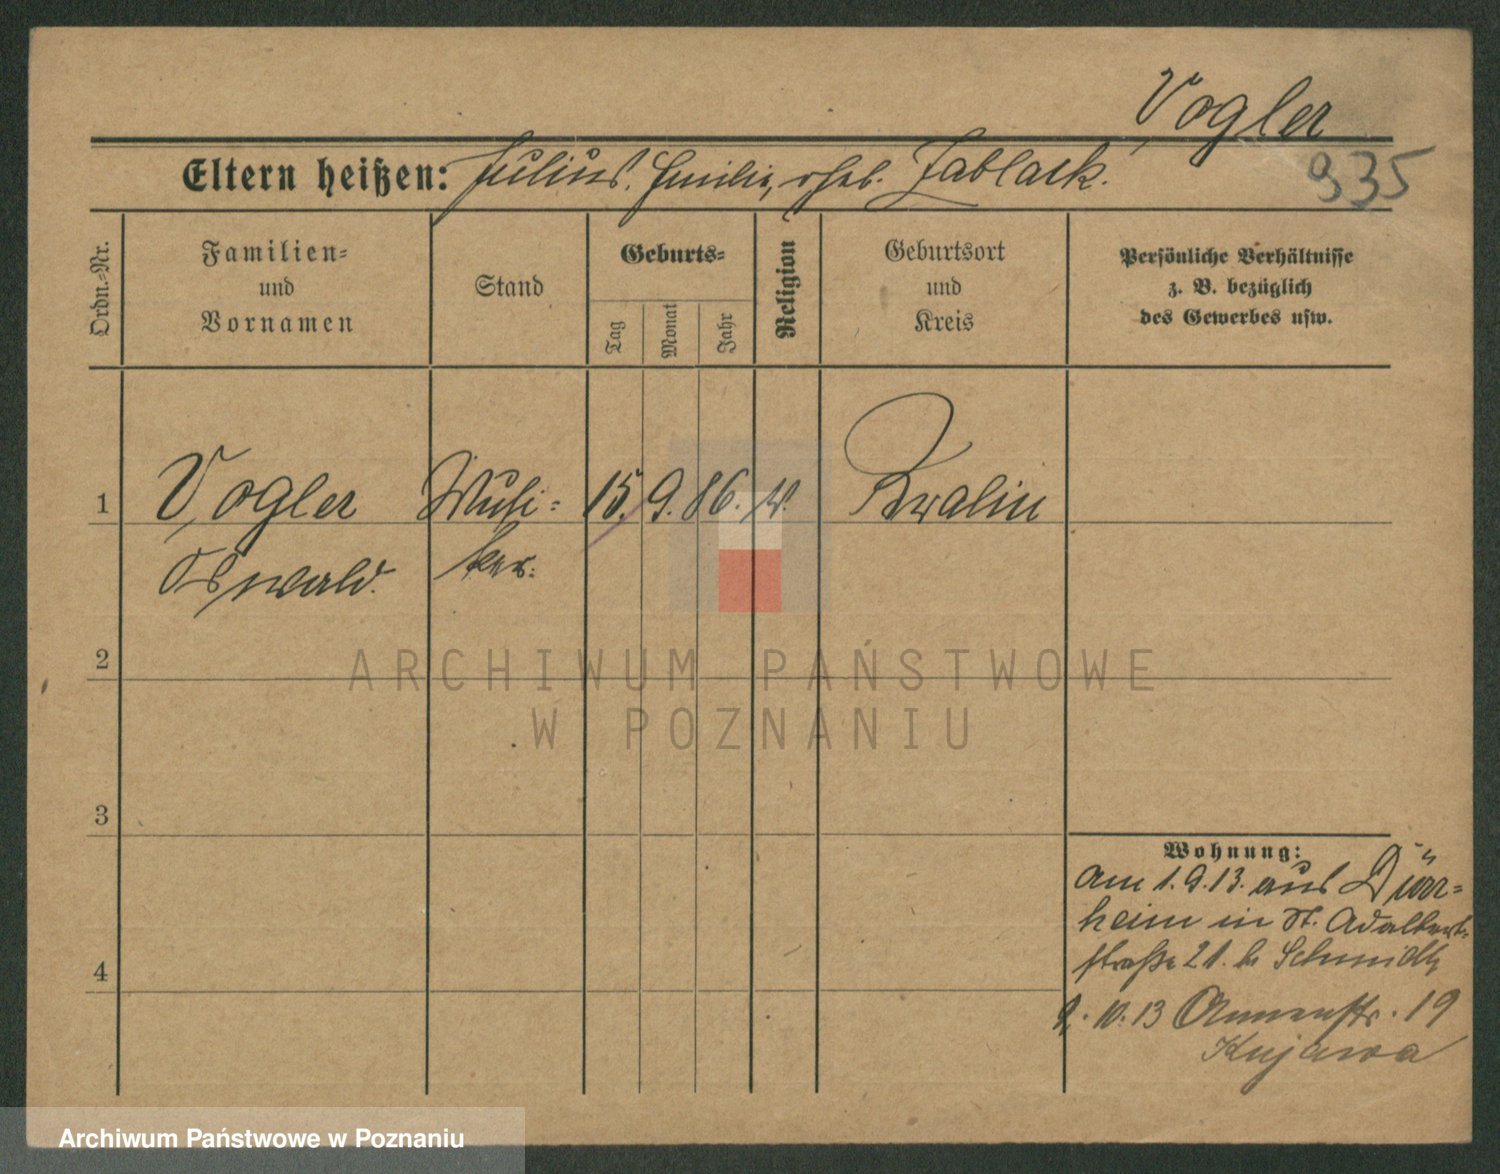 Vogler
Eltern heißen: Julius, Emilie, geb. Jablack.
935
Ordn.-Nr.
Familien-
und
Vornamen
Stand
Geburts-
Tag
Monat
Jahr
Religion
Geburtsort
und
Kreis
Persönliche Verhältnisse
z. B. bezüglich
des Gewerbes usw.
1
Vogler
Oswald.
Musi-
ker.
15.
9.
86.
Berlin
2
ARCHIWUM PAŃSTWOWE
W POZNANIU
3
4
Wohnung:
am 1.9.13. aus Dürr-
heim in St. Adalbert-
straße 21. b Schmidt
2.10.13 Annenstr. 19
Kujawa
Archiwum Państwowe w Poznaniu